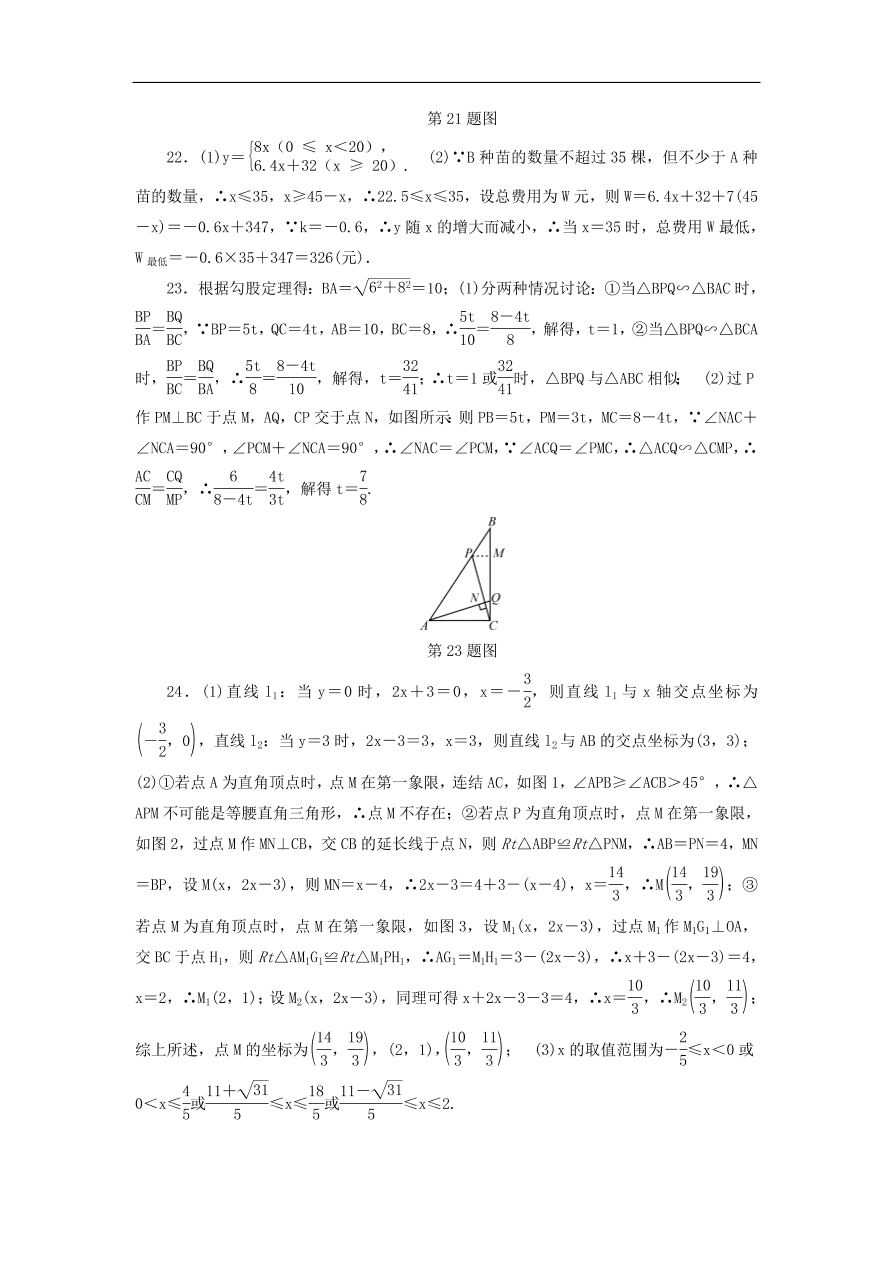 第 21 题图
22．(1)y＝{8x（0 ≤ x＜20），6.4x＋32（x ≥ 20）.　(2)∵B 种苗的数量不超过 35 棵，但不少于 A 种
苗的数量，∴x≤35，x≥45－x，∴22.5≤x≤35，设总费用为 W 元，则 W＝6.4x＋32＋7(45
－x)＝－0.6x＋347，∵k＝－0.6，∴y 随 x 的增大而减小，∴当 x＝35 时，总费用 W 最低，
W 最低＝－0.6×35＋347＝326(元)．
23．根据勾股定理得：BA＝√(6²＋8²)＝10；(1)分两种情况讨论：①当△BPQ∽△BAC 时，
BP/BA＝BQ/BC，∵BP＝5t，QC＝4t，AB＝10，BC＝8，∴5t/10＝(8－4t)/8，解得，t＝1，②当△BPQ∽△BCA
时，BP/BC＝BQ/BA，∴5t/8＝(8－4t)/10，解得，t＝32/41；∴t＝1 或32/41时，△BPQ 与△ABC 相似；　(2)过 P
作 PM⊥BC 于点 M，AQ，CP 交于点 N，如图所示：则 PB＝5t，PM＝3t，MC＝8－4t，∵∠NAC＋
∠NCA＝90°，∠PCM＋∠NCA＝90°，∴∠NAC＝∠PCM，∵∠ACQ＝∠PMC，∴△ACQ∽△CMP，∴
AC/CM＝CQ/MP，∴6/(8－4t)＝4t/3t，解得 t＝7/8.
B
P M
N Q
A C
第 23 题图
24．(1)直线 l₁：当 y＝0 时，2x＋3＝0，x＝－3/2，则直线 l₁ 与 x 轴交点坐标为
(－3/2，0)，直线 l₂：当 y＝3 时，2x－3＝3，x＝3，则直线 l₂与 AB 的交点坐标为(3，3)；
(2)①若点 A 为直角顶点时，点 M 在第一象限，连结 AC，如图 1，∠APB≥∠ACB＞45°，∴△
APM 不可能是等腰直角三角形，∴点 M 不存在；②若点 P 为直角顶点时，点 M 在第一象限，
如图 2，过点 M 作 MN⊥CB，交 CB 的延长线于点 N，则 Rt△ABP≌Rt△PNM，∴AB＝PN＝4，MN
＝BP，设 M(x，2x－3)，则 MN＝x－4，∴2x－3＝4＋3－(x－4)，x＝14/3，∴M(14/3，19/3)；③
若点 M 为直角顶点时，点 M 在第一象限，如图 3，设 M₁(x，2x－3)，过点 M₁ 作 M₁G₁⊥OA，
交 BC 于点 H₁，则 Rt△AM₁G₁≌Rt△M₁PH₁，∴AG₁＝M₁H₁＝3－(2x－3)，∴x＋3－(2x－3)＝4，
x＝2，∴M₁(2，1)；设 M₂(x，2x－3)，同理可得 x＋2x－3－3＝4，∴x＝10/3，∴M₂(10/3，11/3)；
综上所述，点 M 的坐标为(14/3，19/3)，(2，1)，(10/3，11/3)；　(3)x 的取值范围为－2/5≤x＜0 或
0＜x≤4/5或(11＋√31)/5≤x≤18/5或(11－√31)/5≤x≤2.